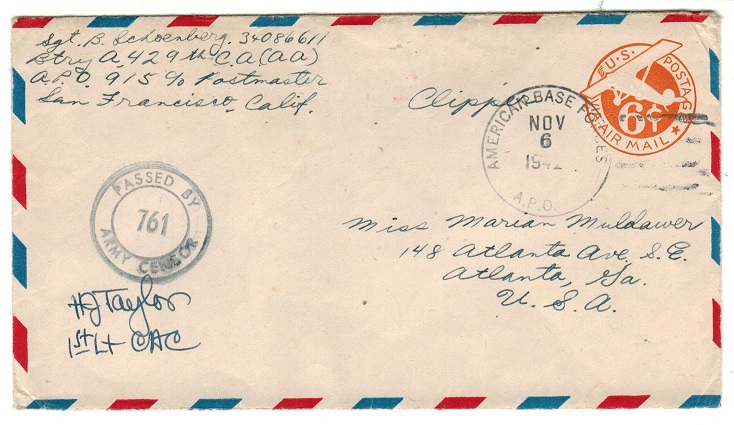 Sgt. B. Schoenberg. 34086611
Btry A, 429th C.A. (AA)
A.P.O. 915 c/o Postmaster
San Francisco, Calif.
Clipper
AMERICAN BASE FORCES
NOV
6
1942
A.P.O.
U.S. POSTAGE
6¢
VIA AIR MAIL
PASSED BY
761
ARMY CENSOR
HJ Taylor
1st Lt CAC
Miss Marian Muldawer
148 Atlanta Ave. S.E.
Atlanta, Ga.
U.S.A.